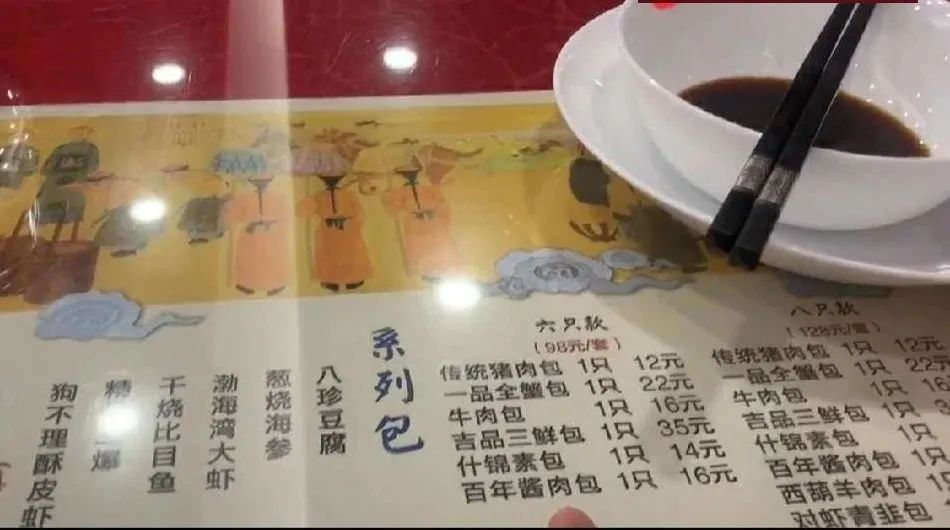 狗不理酥皮虾
精 爆
干烧比目鱼
渤海湾大虾
葱烧海参
八珍豆腐
系列包
六只款
(98元/套)
传统猪肉包 1只 12元
一品全蟹包 1只 22元
牛肉包 1只 16元
吉品三鲜包 1只 35元
什锦素包 1只 14元
百年酱肉包 1只 16元
八只款
(128元/套)
传统猪肉包 1只 12元
一品全蟹包 1只 22元
牛肉包 1只
吉品三鲜包 1只
什锦素包 1只
百年酱肉包 1只
西葫羊肉包 1只
对虾青韭包